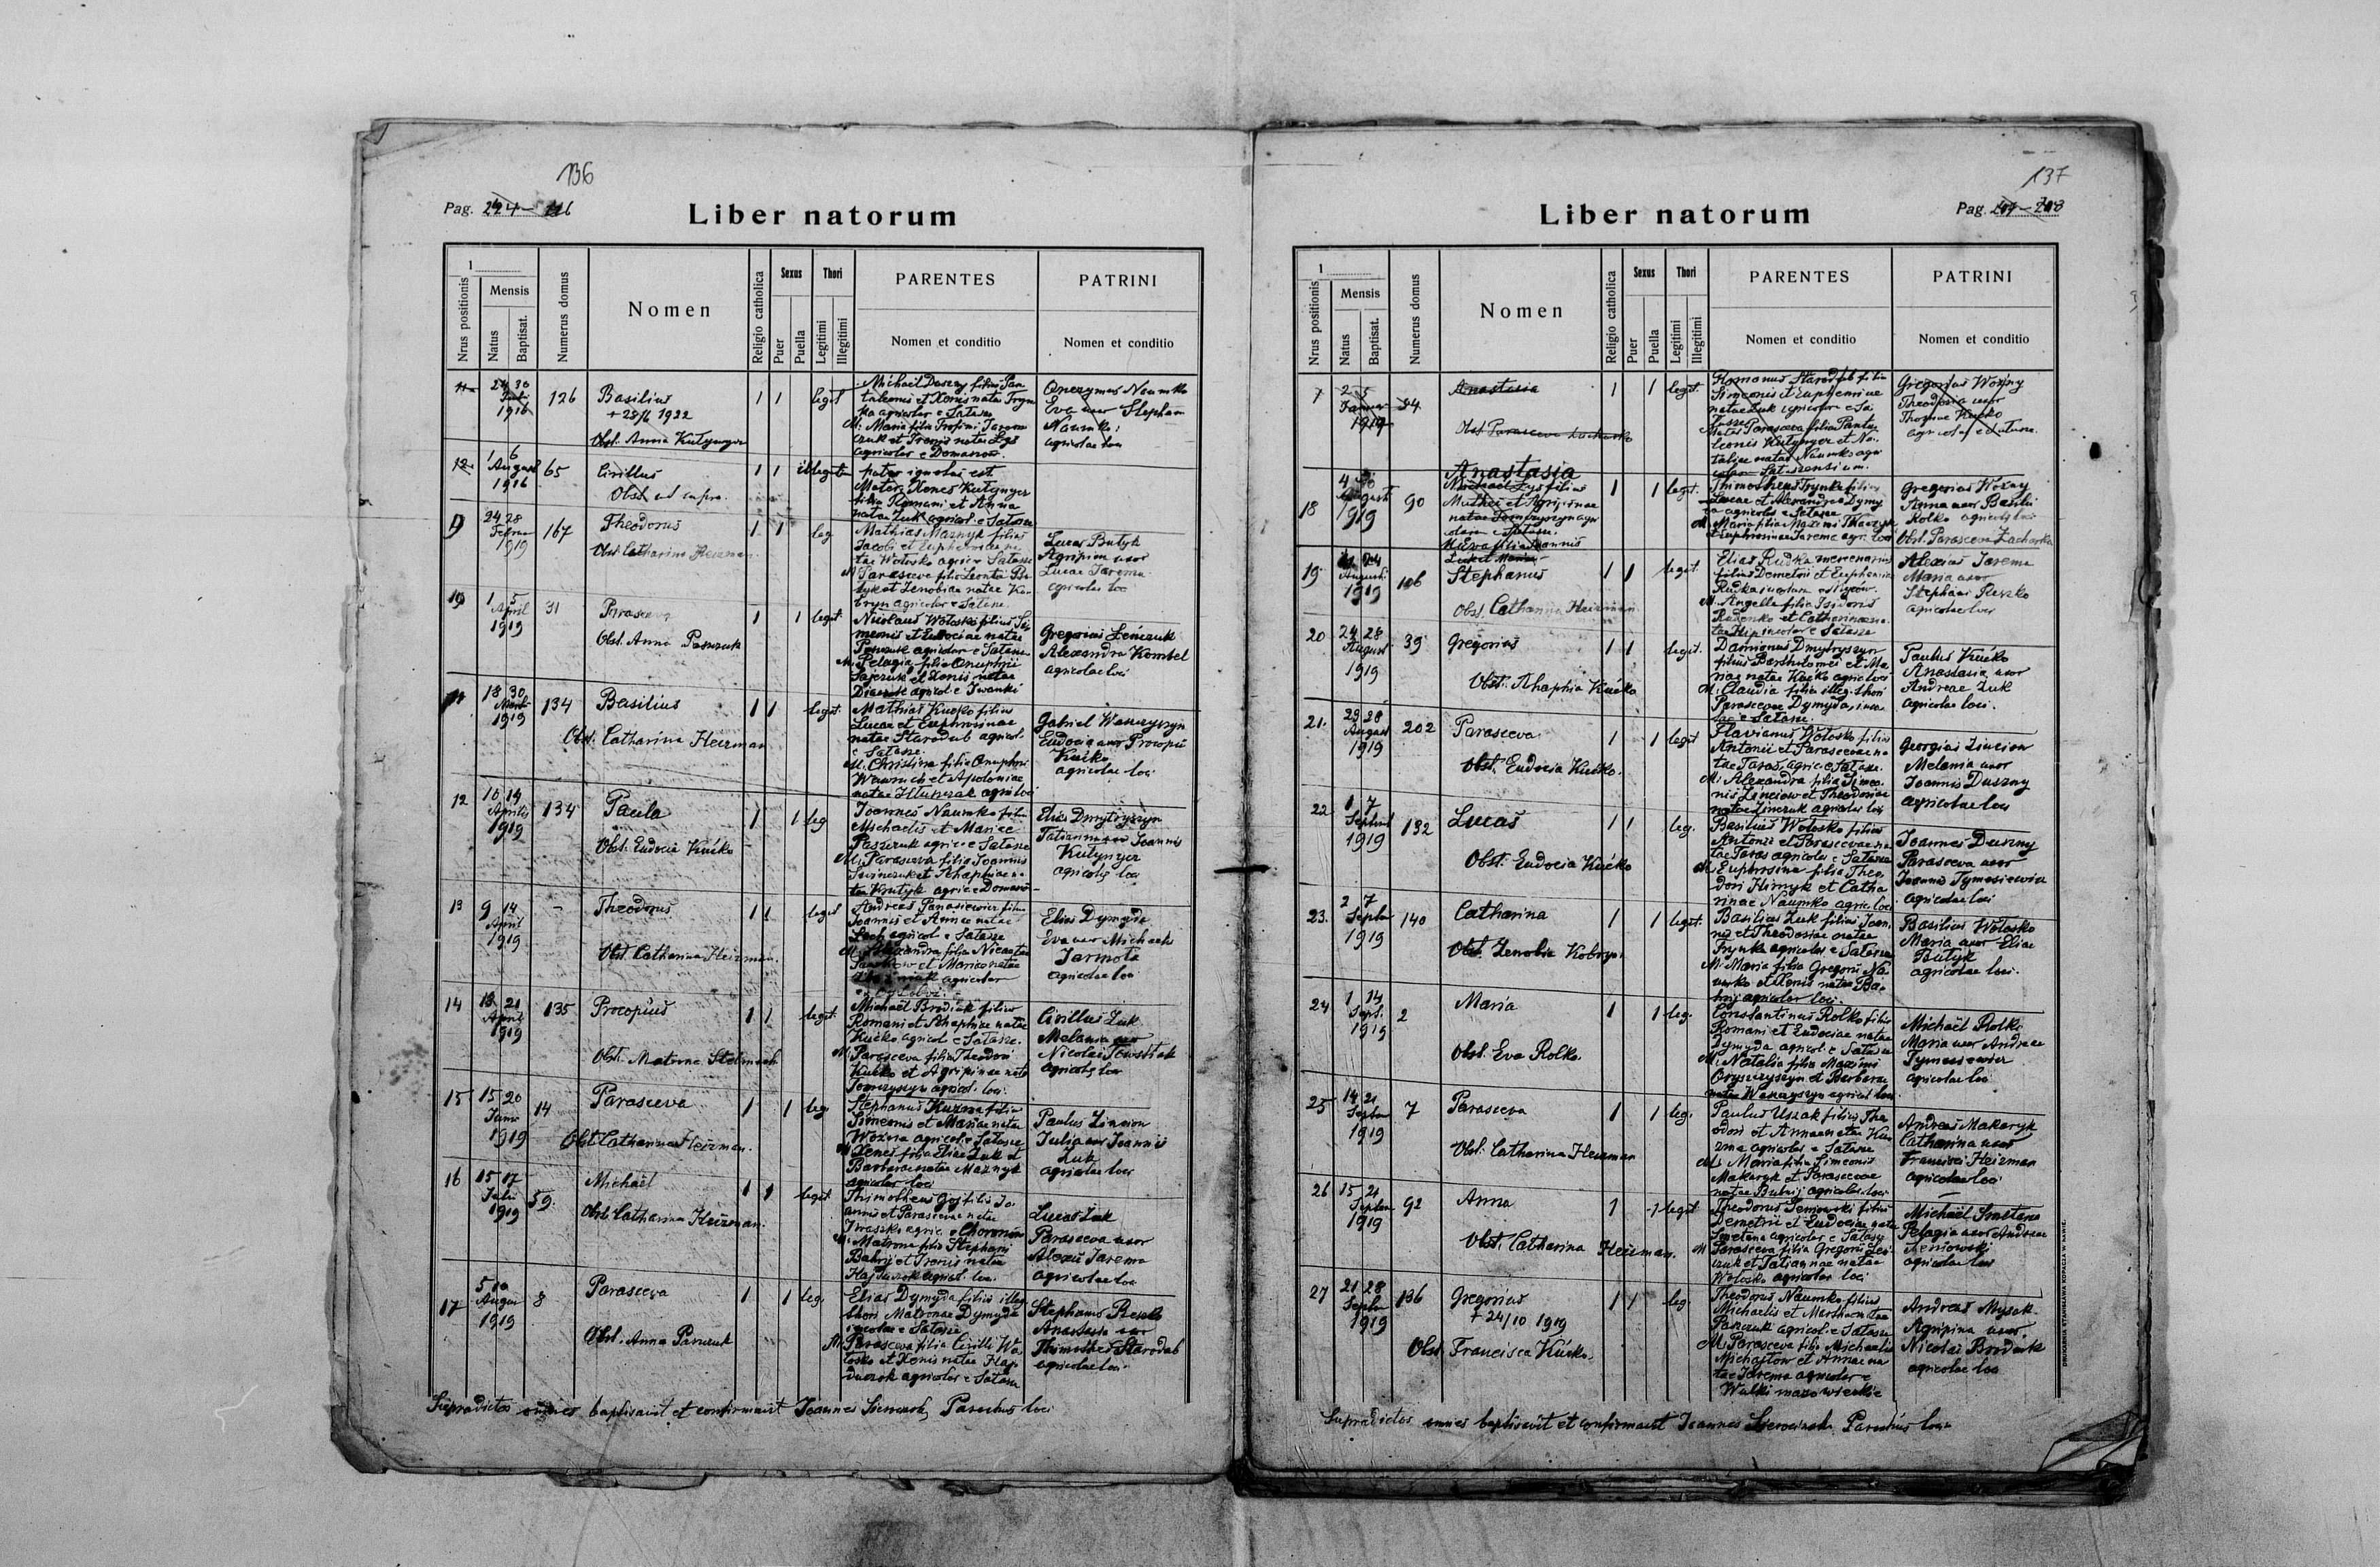 136
Pag. 224 – 226
Liber natorum
1
Nrus positionis
Mensis
Natus
Baptisat.
Numerus domus
Nomen
Religio catholica
Sexus
Puer
Puella
Thori
Legitimi
Illegitimi
PARENTES
Nomen et conditio
PATRINI
Nomen et conditio
11 24 30 Juli 1916 126 Basilius 1 1 legit
+ 28/6 1922
Obst. Anna Kutynger
Michaël Duszny filius Pan
taleonis et Xenis natae Fryn
ka agricolar e Satasze
M: Maria filia Trofimi Jarem
czuk et Irenis natae
agricolar e Domaszow.
Onezymus Naumko
Eva uxor Stephani
Naumko:
agricolae loci
12 1 6 August 1916 65 Cirillus 1 1 illegit
Obst. ut supra.
pater ignotus est
Mater: Xenes Kutynger
filia Romani et Anna
natae Zuk agricol. e Satasze
9 24 28 Februa 1919 167 Theodorus 1 1 leg
Obst. Catharina Heizman.
Mathias Maznyk filius
Jacobi et Euphemiae na
tae Wołosko agric e Satasze
M Parasceva filia Leontii Bu
tyk et Zenobiae natae Ko
bryn agricolar e Satasze
Lucas Butyk
Agripina uxor
Lucae Jarema
agricolae loci
10 1 5 April 1919 31 Parasceva 1 1 legit.
Obst. Anna Paszczuk
Nicolaus Wołosko filius Si
meonis et Eudociae natae
Paszczuk agricolar e Satasze
M: Pelagia filia Onuphrii
Sajczuk et Xenis natae
Diaczuk agricol. e Iwanki
Gregorius Leńczuk
Alexandra Kombel
agricolae loci
11 18 30 Mart 1919 134 Basilius 1 1 legit.
Obst. Catharina Heizman
Mathias Kućko filius
Lucae et Euphrosinae
natae Starodub agricol.
e Satasze.
M. Christina filia Onuphri
Wawruch et Apoloniae
natae agri loci
Gabriel Wawryszyn
Eudocia uxor Procopii
Kućko
agricolae loci
12 10 14 Aprilis 1919 134 Paula 1 1 leg
Obst. Eudocia Kućko
Joannes Naumko filius
Michaelis et Mariae
Paszczuk agric e Satasze
M: Parasceva filia Joannis
Swinczuk et Ahaphiae na
tae Krutyk agric e Domasz
Elias Dmytryszyn
Tatianna uxor Joannis
Kutynger
agricolis loci
13 9 14 April 1919 – Theodorus 1 1 legit
Obst. Catharina Heizman.
Andreas Panasiewicz filius
Joannis et Annae natae
Lech agricol e Satasze
M: Alexandra filia Nicetae
et Mariae natae
agricolar
Elias Dymyda
Eva uxor Michaelis
Jarmota
agricolae loci
14 13 21 April 1919 135 Procopius 1 1 legit.
Obst. Matrona Stelmach
Michaël Brodiak filius
Romani et Ahaphiae natae
Kućko agricol e Satasze.
M: Parasceva filia Theodori
Kućko et Agripinae natae
Tomczyszyn agricol. loci.
Cirillus Zuk
Melania uxor
Nicolai
agricolis loci
15 15 20 Juni 1919 14 Parasceva 1 1 leg.
Obst Catharina Heizman.
Stephanus Kuzma filius
Simeonis et Mariae natae
Wozna agricol. e Satasze
M Xenes filia Eliae Zuk et
Barbarae natae Maznyk
agricolar loci
Paulus Zincion
Julia uxor Joannis
Zuk
agricolae loci
16 15 17 Juli 1919 59. Michaël 1 1 legit.
Obst Catharina Heizman.
Thimotheus Goj filius Jo
annis et Parascevae natae
Iwaszko agric. e Choronów
M: Matrona filia Stephani
Bahrij et Irenis natae
Hajduczok agricol. loci.
Lucas Zuk
Parasceva uxor
Alexii Jarema
agricolae loci
17 5 10 August 1919 8 Parasceva 1 1 leg.
Obst. Anna Paszczuk
Elias Dymyda filius illeg.
thori Matronae Dymyda
incolae e Satasze
M: Parasceva filia Cirilli Wo
łosko et Xenis natae Haj
duczok agricolar e Satasze
Stephanus Reszko
Anastasia uxor
Thimothei Starodub
agricolae loci.
Supradictos omnes baptisavit et confirmavit Joannes Parochus loci
137
Pag.
Liber natorum
1
Nrus positionis
Mensis
Natus
Baptisat.
Numerus domus
Nomen
Religio catholica
Sexus
Puer
Puella
Thori
Legitimi
Illegitimi
PARENTES
Nomen et conditio
PATRINI
Nomen et conditio
7 2 5 Januar 1919 94 Anastasia 1 1 legit.
Obst Parasceva Zacharko
Romanus Starodub filius
Simeonis et Euphemiae
natae Zuk agricolar e Sa
tasze
Mater Parasceva filia Panta
leonis Kutynger et Na
taliae natae Naumko agri
colar Sataszensium.
Gregorius Wozny
Theodosia uxor
Thomae Kućko
agricolae e Satasze.
18 4 August 1919 90 Anastasia 1 1 legit.
Michael Zys filius
Mathei et Agripinae
natae Tomczyszyn agri
colar e Satasze.
M: Eva filia Joannis
Thimotheus Frynka filius
Lucae et Alexandrae Dymy
da agricolar e Satasze
M. Maria filia Maximi Tkaczyk
Euphrosinae Jareme agr. loci
Gregorius Wozny
Anna uxor Basilii
Rolko agricolis loci
Obst. Parasceva Zacharko
19. 24 August. 1919 106 Stephanus 1 1 legit.
Obst. Catharina Heizman.
Elias Rudka mercenarius
filius Demetrii et Euphemiae
Rudka incolar e
M. Angella filia Isidori
Rudenko et Catharinae na
tae Hip incolar e Satasze
Alexius Jarema
Maria uxor
Stephani Reszko
agricolae loci
20 24 28 August 1919 39 Gregorius 1 1 legit.
Obst. Ahaphia Kućko
Damianus Dmytryszyn
filius Bartholomei et Ma
riae natae Kućko agric loci
M: Claudia filia illeg. thori
Parascevae Dymyda, inco
lae e Satasze.
Paulus Kućko
Anastasia uxor
Andreae Zuk
agricolae loci.
21. 23 28 August 1919 202 Parasceva 1 1 legit
Obst. Eudocia Kućko.
Flavianus Wołosko filius
Antonii et Parascevae na
tae Taras, agric e Satasze.
M: Alexandra filia Simeo
nis Zinciow et Theodosiae
natae Zinczuk agricolar loci
Georgius Zinciow
Melania uxor
Joannis Duszny
agricolae loci
22 1 7 Septemb 1919 132 Lucas 1 1 leg.
Obst: Eudocia Kućko
Basilius Wołosko filius
Antonii et Parascevae na
tae Taras agricolar e Satasze
M. Euphrosina filia Theo
dori Hirnyk et Catha
rinae Naumko agric. loci
Joannes Duszny
Parasceva uxor
Joannis Tymosiewicz
agricolae loci
23. 2 7 Septe 1919 140 Catharina 1 1 legit.
Obst. Zenobia Kobryn
Basilius Zuk filius Joan
nis et Theodosiae natae
Frynka agricolar e Satasze
M: Maria filia Gregorii Na
umko et Xenis natae Ba
hrij agricolar loci.
Basilius Wołosko
Maria uxor Eliae
Butyk
agricolae loci.
24 1 14 Sept. 1919 2 Maria 1 1 leg.
Obst. Eva Rolko
Constantinus Rolko filius
Romani et Eudociae natae
Dymyda agricol. e Satasze
M: Natalia filia Maximi
Oryszczyszyn et Barbarae
natae Wawryszyn agricol loci.
Michaël Rolko
Maria uxor Andreae
Tymosiewicz
agricolae loci
25 14 21 Septe 1919 7 Parasceva 1 1 leg.
Obst. Catharina Heizman
Paulus Uszak filius The
odori et Annae natae Kuz
ma agricolar e Satasze
M: Maria filia Simeonis
Makaryk et Parascevae
natae Bubnij agricolar loci
Andreas Makaryk
Catharina uxor
Francisci Heizman
agricolae loci
26 15 21 Septe 1919 92 Anna 1 1 legit.
Obst. Catharina Heizman.
Theodorus Seniowski filius
Demetrii et Eudociae natae
Smetana agricolar e Satasze
M Parasceva filia Gregorii Leń
czuk et Tatiannae natae
Wołosko agricolar loci
Michaël Smetana
Pelagia uxor Andreae
Seniowski
agricolae loci
27 21 28 Septe 1919 136 Gregorius 1 1 leg.
+ 24/10 1919
Obst. Francisca Kućko.
Theodorus Naumko filius
Michaelis et Marthae natae
Paszczuk agricol. e Satasze
M: Parasceva filia Michaelis
Michajłow et Annae na
tae Jarema agricolar e
Wulki mazowieckie
Andreas Mysak
Agripina uxor
Nicolai Brodiak
agricolae loci
Supradictos omnes baptisavit et confirmavit Joannes Parochus loci
DRUKARNIA STANISŁAWA KOPACZA W RAWIE.